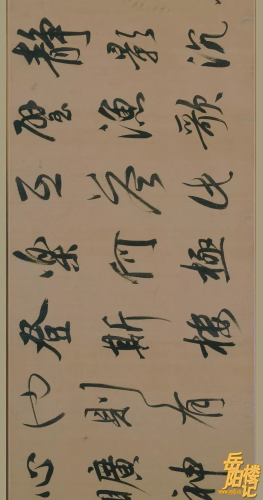 静影沉
璧漁歌
互答此
樂何極
登斯樓
也則有
心曠神
岳阳楼记